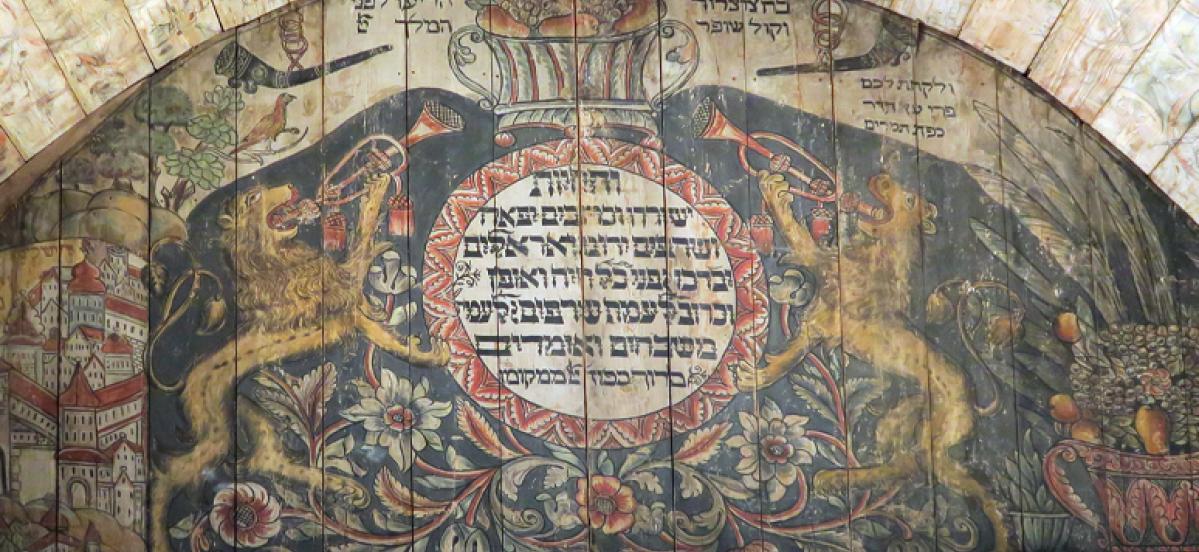 בחצצרות
וקול שופר
הריעו לפני
המלך
ולקחת לכם
פרי עץ הדר
כפת תמרים
והחיות
ישוררו וכרובים
ושרפים ירונו ואראלים
יברכו פני כל חיה ואופן
וכרוב לעמת שרפים לעמ
משבחים ואומרים
ברוך כבוד ממקומו